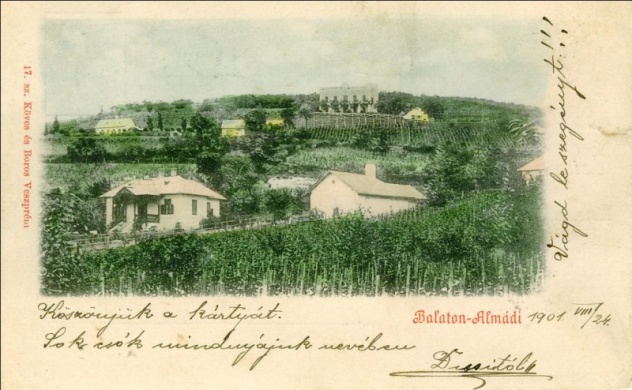 17. sz. Köves és Boros Veszprém
Vágd le szegényt!!!
Balaton-Almádi 1901. VIII/24.
Köszönjük a kártyát.
Sok csók mindnyájunk nevében